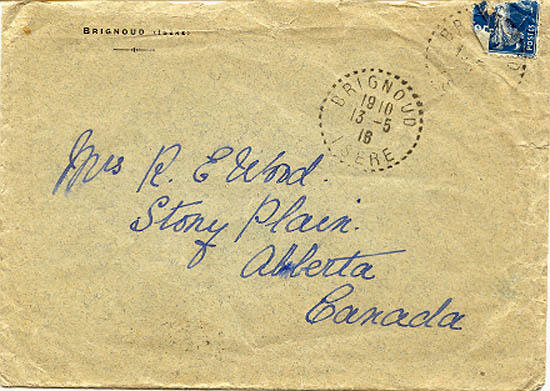 BRIGNOUD (ISÈRE)
BRIGNOUD
1910
13 -5
16
ISERE
25
POSTES
Mrs R. E Wood.
Stony Plain.
Alberta
Canada